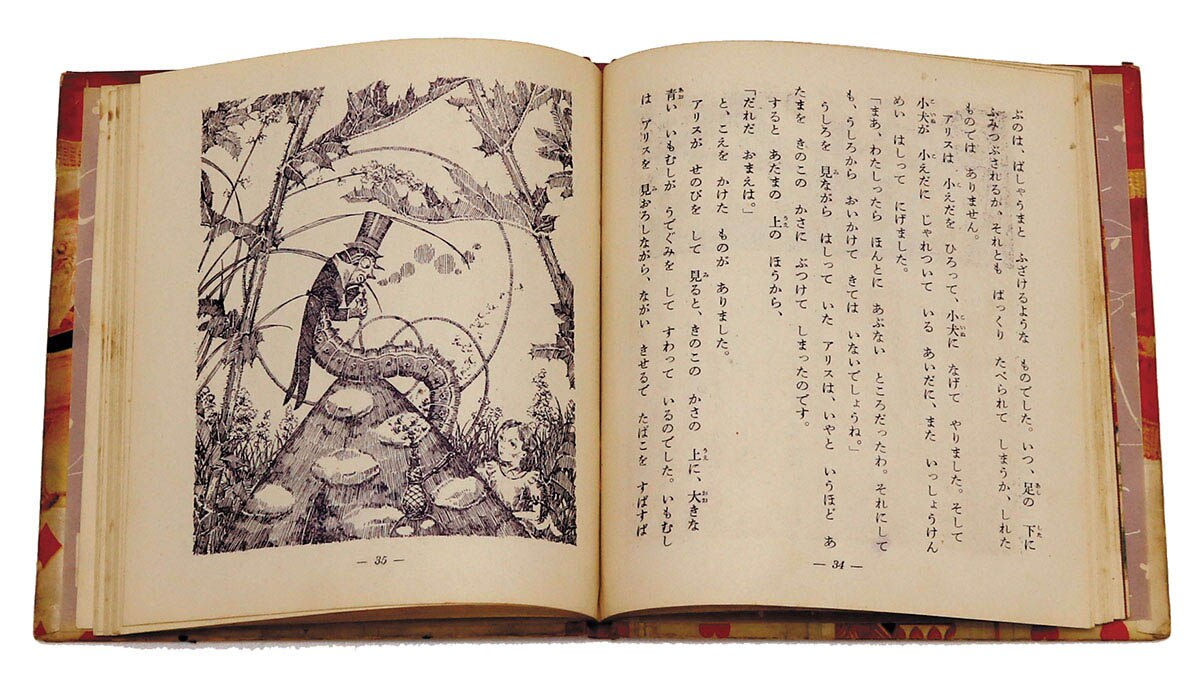 ぶのは、ばしゃうまと ふざけるような ものでした。いつ、足の 下に
ふみつぶされるか、それとも ぱっくり たべられて しまうか、しれた
ものでは ありません。
アリスは 小えだを ひろって、小犬に なげて やりました。そして
小犬が 小えだに じゃれついて いる あいだに、また いっしょうけん
めい はしって にげました。
「まあ、わたしったら ほんとに あぶない ところだったわ。それにして
も、うしろから おいかけて きては いないでしょうね。」
うしろを 見ながら はしって いた アリスは、いやと いうほど あ
たまを きのこの かさに ぶつけて しまったのです。
すると あたまの 上の ほうから、
「だれだ おまえは。」
と、こえを かけた ものが ありました。
アリスが せのびを して 見ると、きのこの かさの 上に、大きな
青い いもむしが うでぐみを して すわって いるのでした。いもむし
は アリスを 見おろしながら、ながい きせるで たばこを すぱすぱ
— 34 —
— 35 —